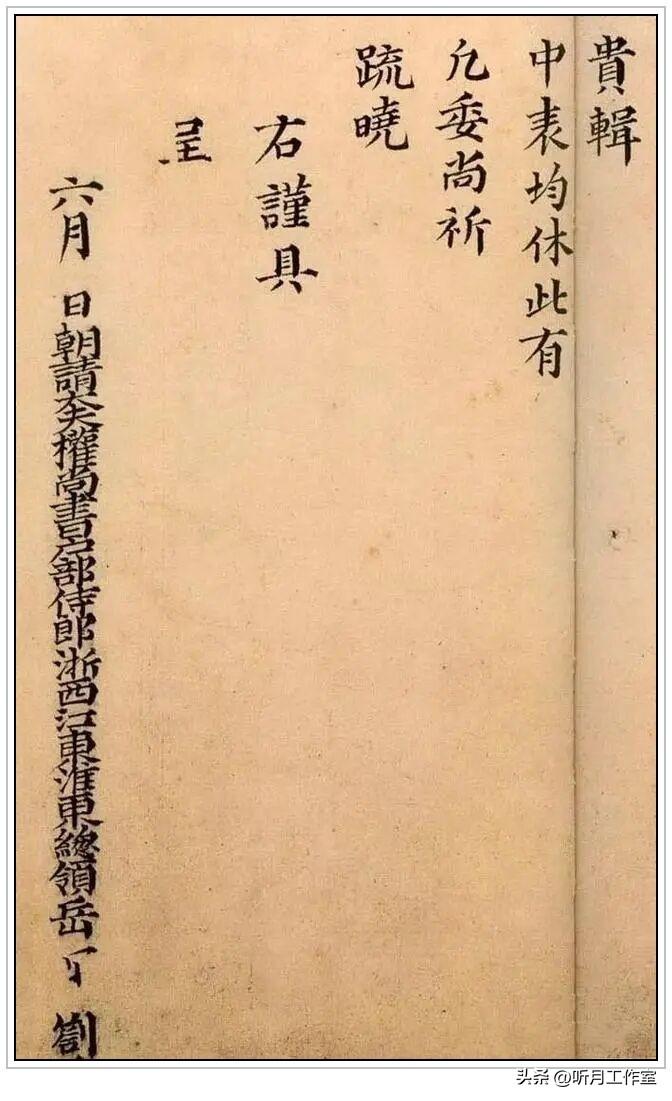 貴輯
中表均休此有
凢委尚祈
疏曉
右謹具
呈
六月 日朝請大夫權尚書户部侍郎浙西江東淮東總領岳 劄
头条 @听月工作室